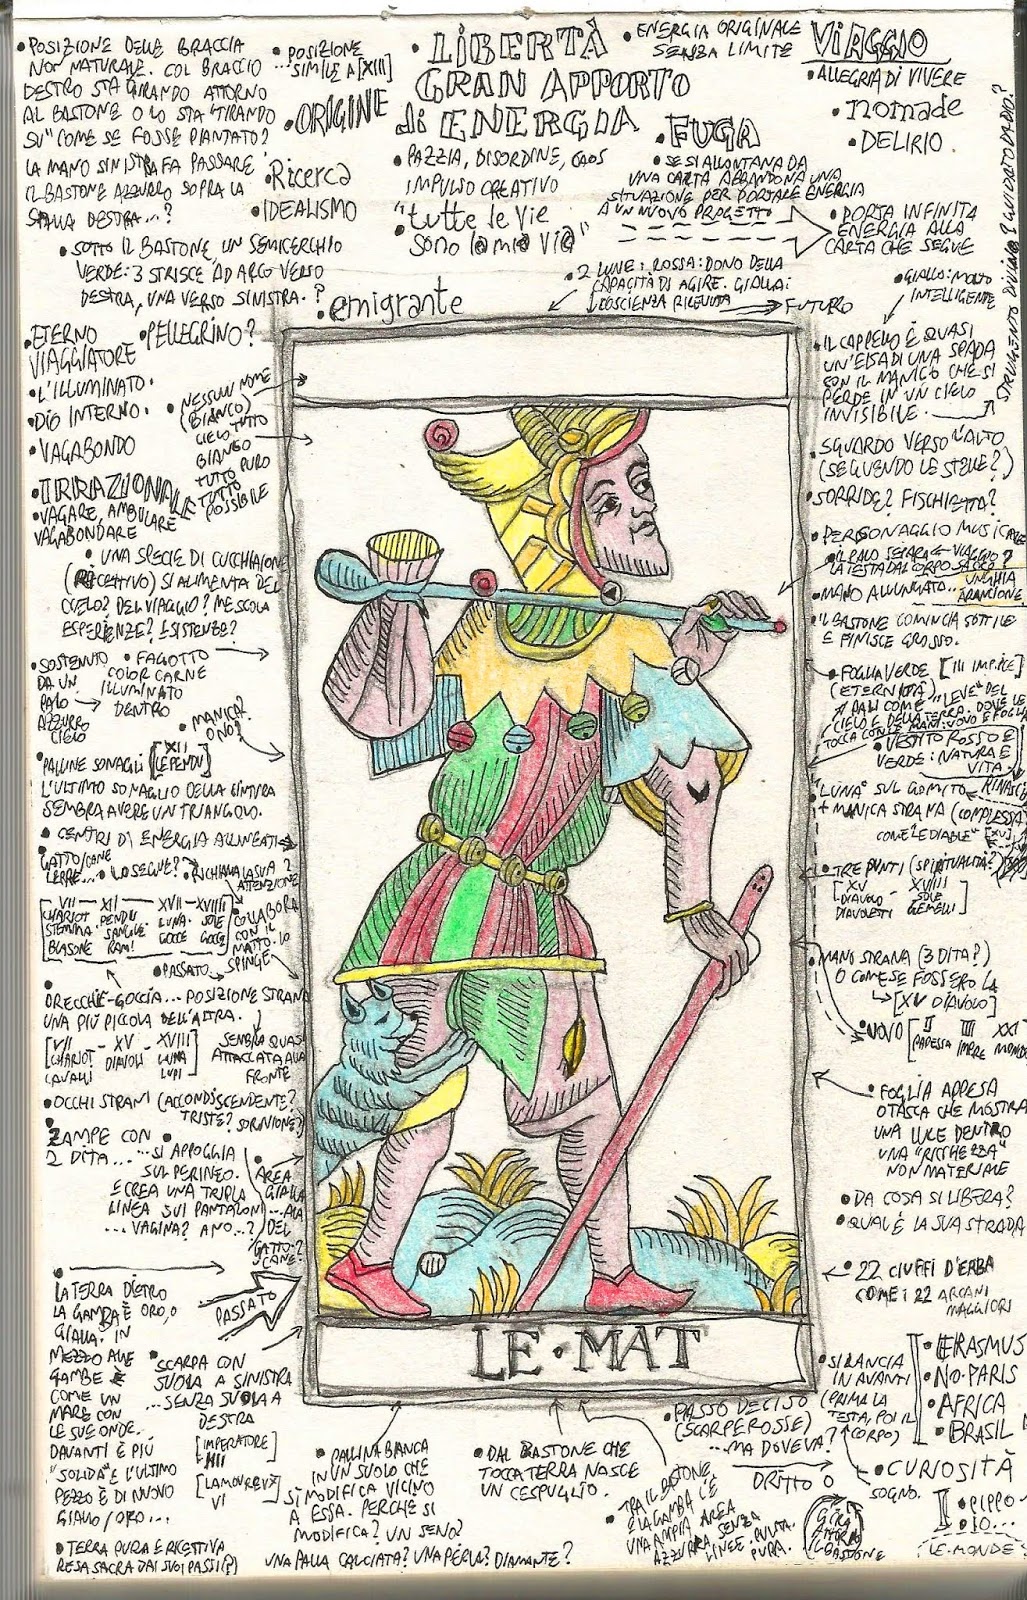 •POSIZIONE DELLE BRACCIA
NON NATURALE. COL BRACCIO
DESTRO STA GIRANDO ATTORNO
AL BASTONE O LO STA "TIRANDO
SU" COME SE FOSSE PIANTATO?
LA MANO SINISTRA FA PASSARE
IL BASTONE AZZURRO SOPRA LA
SPALLA DESTRA...?
• POSIZIONE
SIMILE A [XIII]
•ORIGINE
•Ricerca
•IDEALISMO
• LIBERTÀ
GRAN APPORTO
di ENERGIA
• PAZZIA, DISORDINE, CAOS
IMPULSO CREATIVO
•"tutte le vie
sono la mia via"
•ENERGIA ORIGINALE
SENZA LIMITE
VIAGGIO
•ALLEGRIA DI VIVERE
•nomade
•DELIRIO
•FUGA
• SE SI ALLONTANA DA
UNA CARTA ABBANDONA UNA
SITUAZIONE PER PORTARE ENERGIA
A UN NUOVO PROGETTO
• PORTA INFINITA
ENERGIA ALLA
CARTA CHE SEGUE
• SOTTO IL BASTONE, UN SEMICERCHIO
VERDE: 3 STRISCE AD ARCO VERSO
DESTRA, UNA VERSO SINISTRA. ?
•emigrante
•2 LUNE: ROSSA: DONO DELLA
CAPACITÀ DI AGIRE. GIALLA:
COSCIENZA RICEVUTA
FUTURO
•GIALLO: MOLTO
INTELLIGENTE
STRUMENTO DIVINO? GUIDATO DA DIO?
•ETERNO
VIAGGIATORE
•PELLEGRINO?
•L'ILLUMINATO.
•DIO INTERNO.
•VAGABONDO
•NESSUN NOME
(BIANCO)
CIELO TUTTO
BIANCO
TUTTO PURO
TUTTO
POSSIBILE
•IRRAZIONALE
•VAGARE, AMBULARE
VAGABONDARE
•IL CAPPELLO È QUASI
UN'ELSA DI UNA SPADA
CON IL MANICO CHE SI
PERDE IN UN CIELO
INVISIBILE.
SGUARDO VERSO L'ALTO
(SEGUENDO LE STELLE?)
•SORRIDE? FISCHIETTA?
•PERSONAGGIO MUSICALE
•IL PALO SEPARA
LA TESTA DAL CORPO
VIAGGIO
SACRO?
•MANO ALLUNGATA..
UNGHIA
ARANCIONE
•IL BASTONE COMINCIA SOTTILE
E FINISCE GROSSO.
• UNA SPECIE DI CUCCHIAIONE
(RICETTIVO) SI ALIMENTA DEL
CIELO? DEL VIAGGIO? MESCOLA
ESPERIENZE? ESISTENZE?
•SOSTENUTO
DA UN
PALO
AZZURRO
CIELO
• FAGOTTO
COLOR CARNE
ILLUMINATO
DENTRO
• MANICA?
O NO?
•FOGLIA VERDE [III IMP.ICE]
(ETERNITÀ)
•VESTITO ROSSO E
VERDE: NATURA E
VITA.
"LUNA" SUL GOMITO
+ MANICA STRANA (COMPLESSA
COME LE DIABLE" [XV]
•PALLINE SONAGLI [XII LE PENDU]
L'ULTIMO SONAGLIO DELLA CINTURA
SEMBRA AVERE UN TRIANGOLO.
• CENTRI DI ENERGIA ALLINEATI
•GATTO/CANE
LEPRE... •LO SEGUE? •RICHIAMA LA SUA
ATTENZIONE?
[VII — XII — XVII — XVIIII]
CHARIOT PENDU LUNA. SOLE
STEMMA. SANGUE GOCCE GOCCE
BLASONE RAMI
COLLABORA
CON IL
MATTO. LO
SPINGE
•PASSATO
•TRE PUNTI (SPIRITUALITÀ?)
[XV — XVIIII]
DIAVOLO SOLE
DIAVOLETTI GEMELLI
•MANO STRANA (3 DITA?)
O COME SE FOSSERO LA
[XV DIAVOLO]
•UOVO [II III XXI
PAPESSA IMP.RE MONDO
•ORECCHIE-GOCCIA... POSIZIONE STRANA
UNA PIÙ PICCOLA DELL'ALTRA.
[VII — XV — XVIII]
CHARIOT DIAVOLI LUNA
CAVALLI LUPI
SEMBRA QUASI
ATTACCATA ALLA
FRONTE
•OCCHI STRANI (ACCONDISCENDENTE?
TRISTE? SORNIONE?)
•ZAMPE CON
2 DITA...
•...SI APPOGGIA
SUL PERINEO.
E CREA UNA TRIPLA
LINEA SUI PANTALONI
... VAGINA? ANO...?
•AREA
GIALLA
...ALA
DEL
GATTO?
CANE?
• FOGLIA APPESA
O TASCA CHE MOSTRA
UNA LUCE DENTRO
UNA "RICCHEZZA"
NON MATERIALE
•DA COSA SI LIBERA?
•QUAL È LA SUA STRADA
•22 CIUFFI D'ERBA
COME I 22 ARCANI
MAGGIORI
LE·MAT
•LA TERRA DIETRO
LA GAMBA È ORO, O
GIALLA. IN
MEZZO ALLE
GAMBE È
COME UN
MARE CON
LE SUE ONDE.
DAVANTI È PIÙ
"SOLIDA" E L'ULTIMO
PEZZO È DI NUOVO
GIALLO/ORO...
PASSATO
•SCARPA CON
SUOLA A SINISTRA
...SENZA SUOLA A
DESTRA
[IMPERATORE]
IIII
[LAMOUREVX]
VI
• TERRA PURA E RICETTIVA
RESA SACRA DAI SUOI PASSI(?)
• PALLINA BIANCA
IN UN SUOLO CHE
SI MODIFICA VICINO
A ESSA. PERCHE SI
MODIFICA? UN SENO?
UNA PALLA CALCIATA? UNA PERLA? DIAMANTE?
•DAL BASTONE CHE
TOCCA TERRA NASCE
UN CESPUGLIO.
•TRA IL BASTONE
E LA GAMBA C'È
UN'AMPIA AREA
AZZURRA SENZA
LINEE. PULITA.
PURA.
•PASSO DECISO
(SCARPE ROSSE)
...MA DOVE VA?
DRITTO O
GIRA
ATTORNO
IL BASTONE
•SI LANCIA
IN AVANTI
(PRIMA LA
TESTA, POI IL
CORPO)
•ERASMUS
•NO-PARIS
•AFRICA
•BRASIL
•CURIOSITÀ
SOGNO.
•PIPPO
•IO...
(LE-MONDE